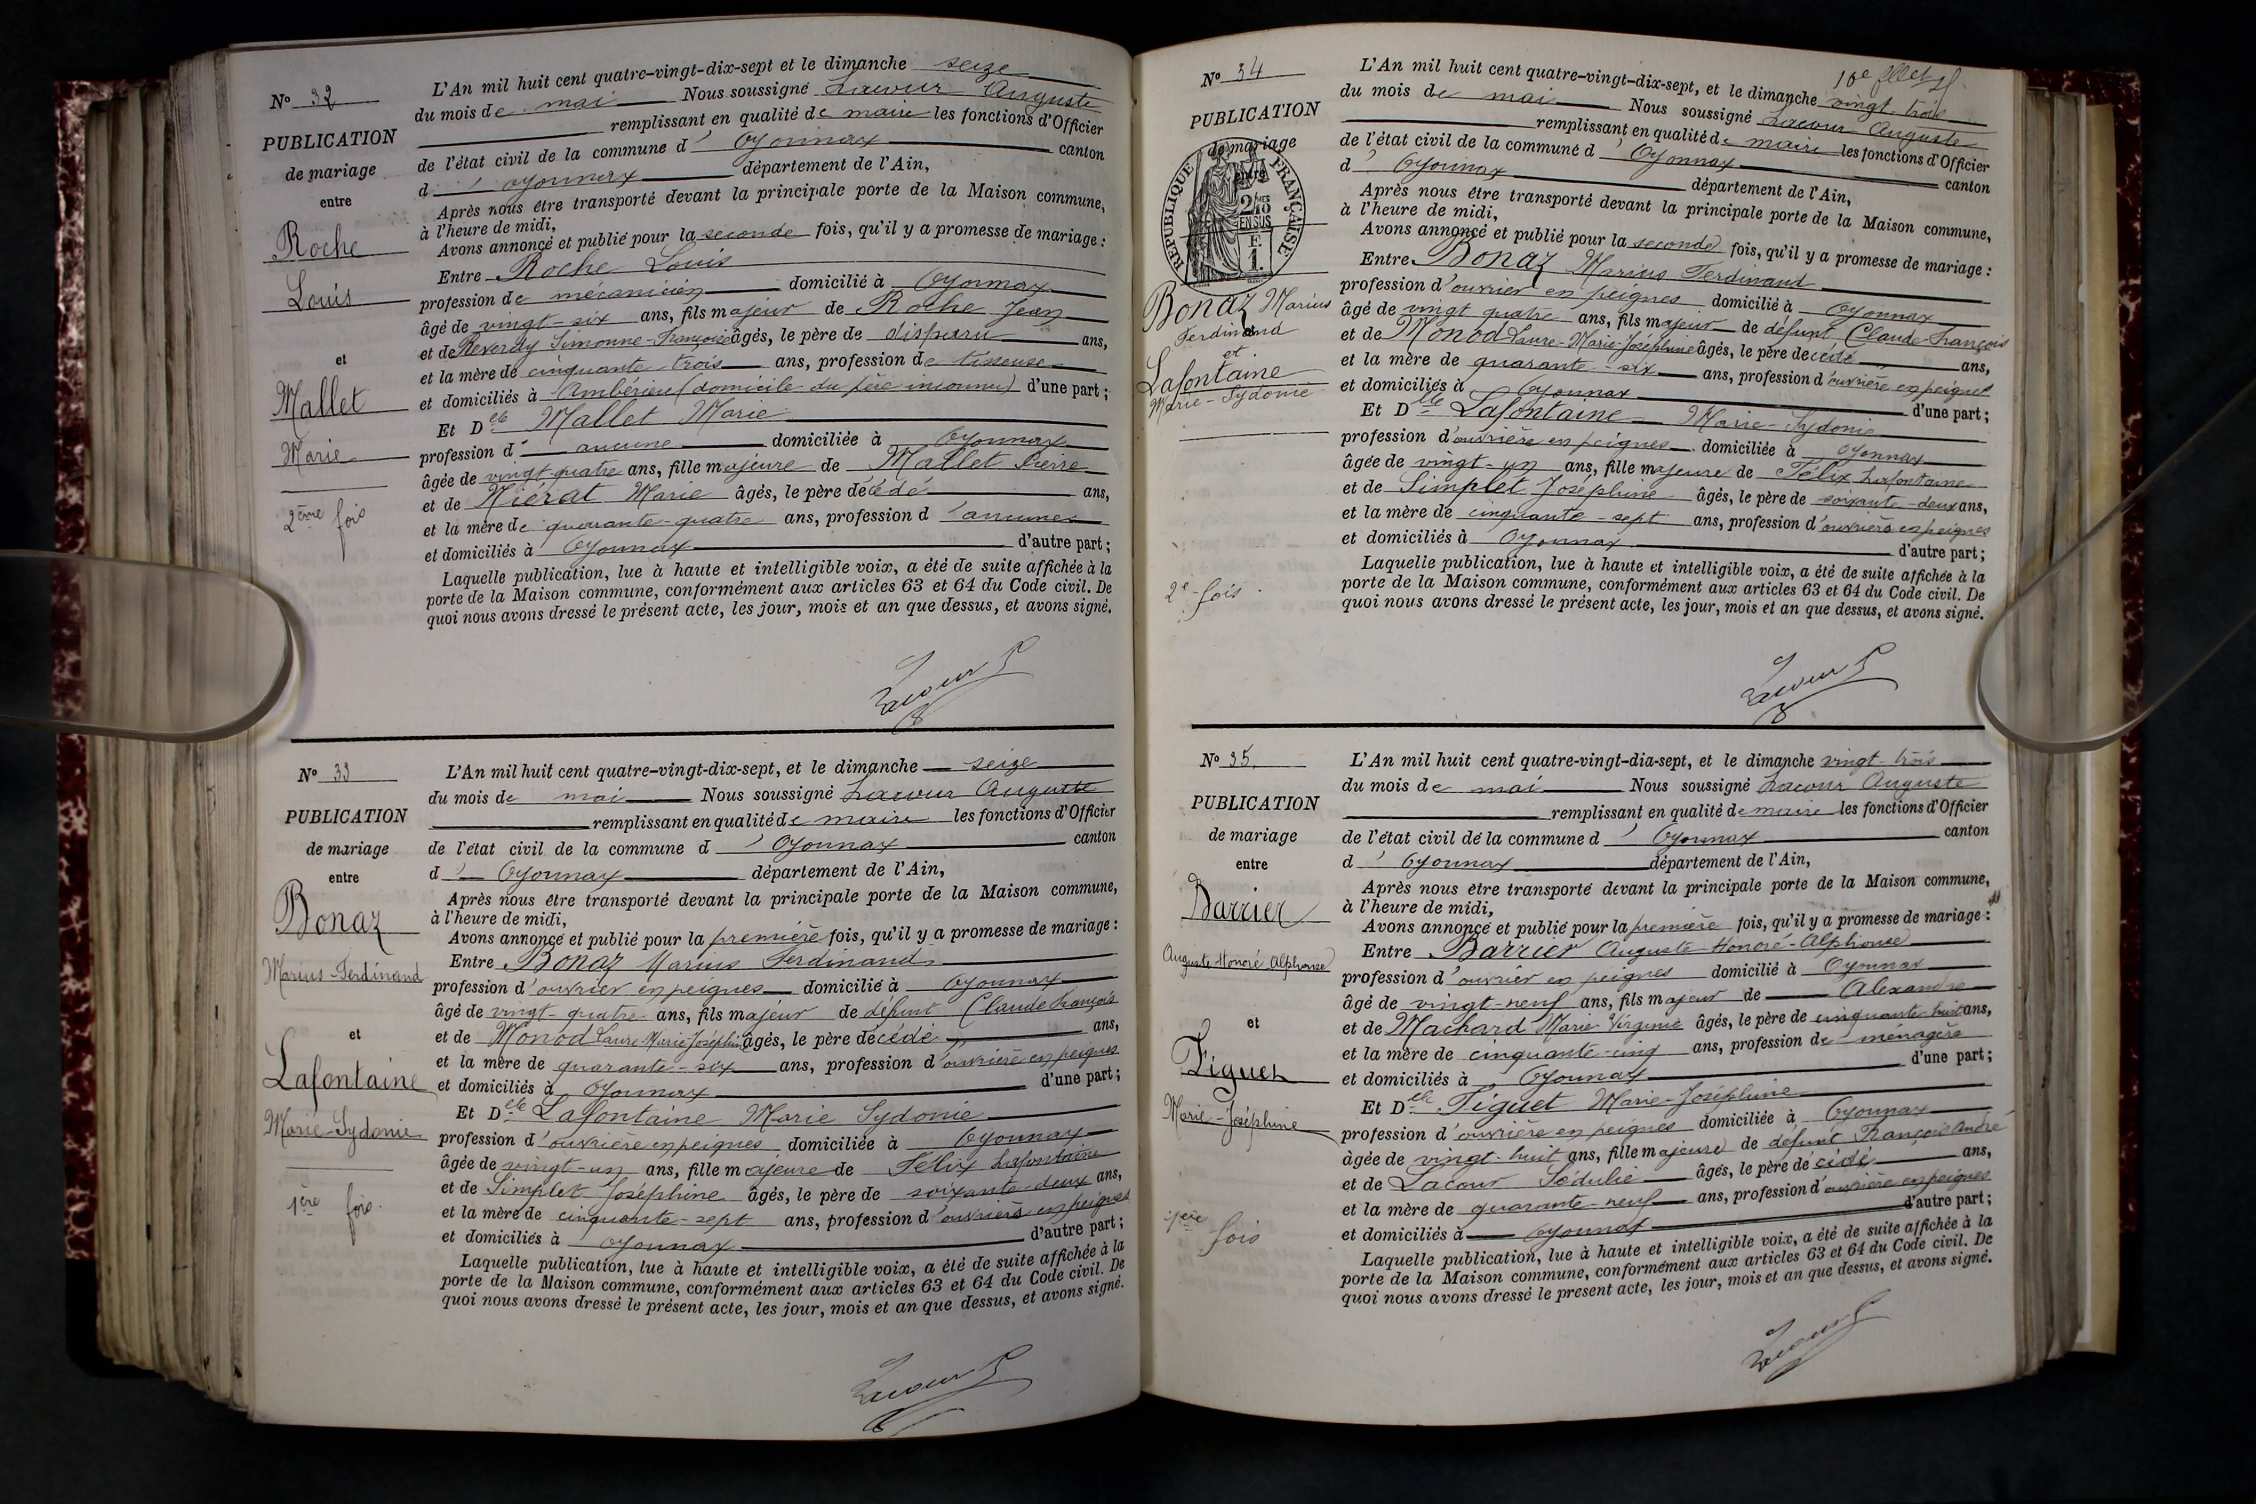 N° 32
PUBLICATION
de mariage
entre
Roche
Louis
et
Mallet
Marie
2ème fois
L'An mil huit cent quatre-vingt-dix-sept et le dimanche seize
du mois de mai Nous soussigné Lacour Auguste
remplissant en qualité de maire les fonctions d'Officier
de l'état civil de la commune d' Oyonnax canton
d' Oyonnax département de l'Ain,
Après nous être transporté devant la principale porte de la Maison commune,
à l'heure de midi,
Avons annoncé et publié pour la seconde fois, qu'il y a promesse de mariage :
Entre Roche Louis
profession de mécanicien domicilié à Oyonnax
âgé de vingt-six ans, fils majeur de Roche Jean
et de Reverdy Simonne-Françoise âgés, le père de disparu ans,
et la mère de cinquante-trois ans, profession de tisseuse
et domiciliés à Ambérieu (domicile du père inconnu) d'une part ;
Et Delle Mallet Marie
profession d' aucune domiciliée à Oyonnax
âgée de vingt-quatre ans, fille majeure de Mallet Pierre
et de Miérat Marie âgés, le père décédé ans,
et la mère de quarante-quatre ans, profession d'aucune
et domiciliés à Oyonnax d'autre part ;
Laquelle publication, lue à haute et intelligible voix, a été de suite affichée à la
porte de la Maison commune, conformément aux articles 63 et 64 du Code civil. De
quoi nous avons dressé le présent acte, les jour, mois et an que dessus, et avons signé.
Lacour
N° 33
PUBLICATION
de mariage
entre
Bonaz
Marius-Ferdinand
et
Lafontaine
Marie-Sydonie
1ère fois.
L'An mil huit cent quatre-vingt-dix-sept, et le dimanche seize
du mois de mai Nous soussigné Lacour Auguste
remplissant en qualité de maire les fonctions d'Officier
de l'état civil de la commune d' Oyonnax canton
d' Oyonnax département de l'Ain,
Après nous être transporté devant la principale porte de la Maison commune,
à l'heure de midi,
Avons annoncé et publié pour la première fois, qu'il y a promesse de mariage :
Entre Bonaz Marius Ferdinand
profession d'ouvrier en peignes domicilié à Oyonnax
âgé de vingt-quatre ans, fils majeur de défunt Claude François
et de Monod Laure Marie Joséphine âgés, le père décédé ans,
et la mère de quarante-six ans, profession d'ouvrière en peignes
et domiciliés à Oyonnax d'une part ;
Et Delle Lafontaine Marie Sydonie
profession d'ouvrière en peignes domiciliée à Oyonnax
âgée de vingt-un ans, fille majeure de Félix Lafontaine
et de Simplet Joséphine âgés, le père de soixante-deux ans,
et la mère de cinquante-sept ans, profession d'ouvriers en peignes
et domiciliés à Oyonnax d'autre part ;
Laquelle publication, lue à haute et intelligible voix, a été de suite affichée à la
porte de la Maison commune, conformément aux articles 63 et 64 du Code civil. De
quoi nous avons dressé le présent acte, les jour, mois et an que dessus, et avons signé.
Lacour
N° 34
PUBLICATION
de mariage
entre
RÉPUBLIQUE FRANÇAISE
2/10 EN SUS
F. 1.
Bonaz Marius
Ferdinand
et
Lafontaine
Marie-Sydonie
2e fois
L'An mil huit cent quatre-vingt-dix-sept, et le dimanche vingt-trois
du mois de mai Nous soussigné Lacour Auguste
remplissant en qualité de maire les fonctions d'Officier
de l'état civil de la commune d' Oyonnax canton
d' Oyonnax département de l'Ain,
Après nous être transporté devant la principale porte de la Maison commune,
à l'heure de midi,
Avons annoncé et publié pour la seconde fois, qu'il y a promesse de mariage :
Entre Bonaz Marius Ferdinand
profession d'ouvrier en peignes domicilié à Oyonnax
âgé de vingt quatre ans, fils majeur de défunt Claude-François
et de Monod Laure-Marie-Joséphine âgés, le père décédé ans,
et la mère de quarante-six ans, profession d'ouvrière en peignes
et domiciliés à Oyonnax d'une part ;
Et Dlle Lafontaine Marie-Sydonie
profession d'ouvrière en peignes domiciliée à Oyonnax
âgée de vingt-un ans, fille majeure de Félix Lafontaine
et de Simplet Joséphine âgés, le père de soixante-deux ans,
et la mère de cinquante-sept ans, profession d'ouvriers en peignes
et domiciliés à Oyonnax d'autre part ;
Laquelle publication, lue à haute et intelligible voix, a été de suite affichée à la
porte de la Maison commune, conformément aux articles 63 et 64 du Code civil. De
quoi nous avons dressé le présent acte, les jour, mois et an que dessus, et avons signé.
Lacour
N° 35.
PUBLICATION
de mariage
entre
Barrier
Auguste Honoré Alphonse
et
Figuet
Marie-Joséphine
1ère fois
L'An mil huit cent quatre-vingt-dix-sept, et le dimanche vingt-trois
du mois de mai Nous soussigné Lacour Auguste
remplissant en qualité de maire les fonctions d'Officier
de l'état civil de la commune d' Oyonnax canton
d' Oyonnax département de l'Ain,
Après nous être transporté devant la principale porte de la Maison commune,
à l'heure de midi,
Avons annoncé et publié pour la première fois, qu'il y a promesse de mariage :
Entre Barrier Auguste Honoré-Alphonse
profession d'ouvrier en peignes domicilié à Oyonnax
âgé de vingt-neuf ans, fils majeur de Alexandre
et de Machard Marie Virginie âgés, le père de cinquante-huit ans,
et la mère de cinquante-cinq ans, profession de ménagère
et domiciliés à Oyonnax d'une part ;
Et Delle Figuet Marie-Joséphine
profession d'ouvrière en peignes domiciliée à Oyonnax
âgée de vingt-huit ans, fille majeure de défunt François André
et de Lacour Sédulie âgés, le père décédé ans,
et la mère de quarante-neuf ans, profession d'ouvrière en peignes
et domiciliés à Oyonnax d'autre part ;
Laquelle publication, lue à haute et intelligible voix, a été de suite affichée à la
porte de la Maison commune, conformément aux articles 63 et 64 du Code civil. De
quoi nous avons dressé le présent acte, les jour, mois et an que dessus, et avons signé.
Lacour